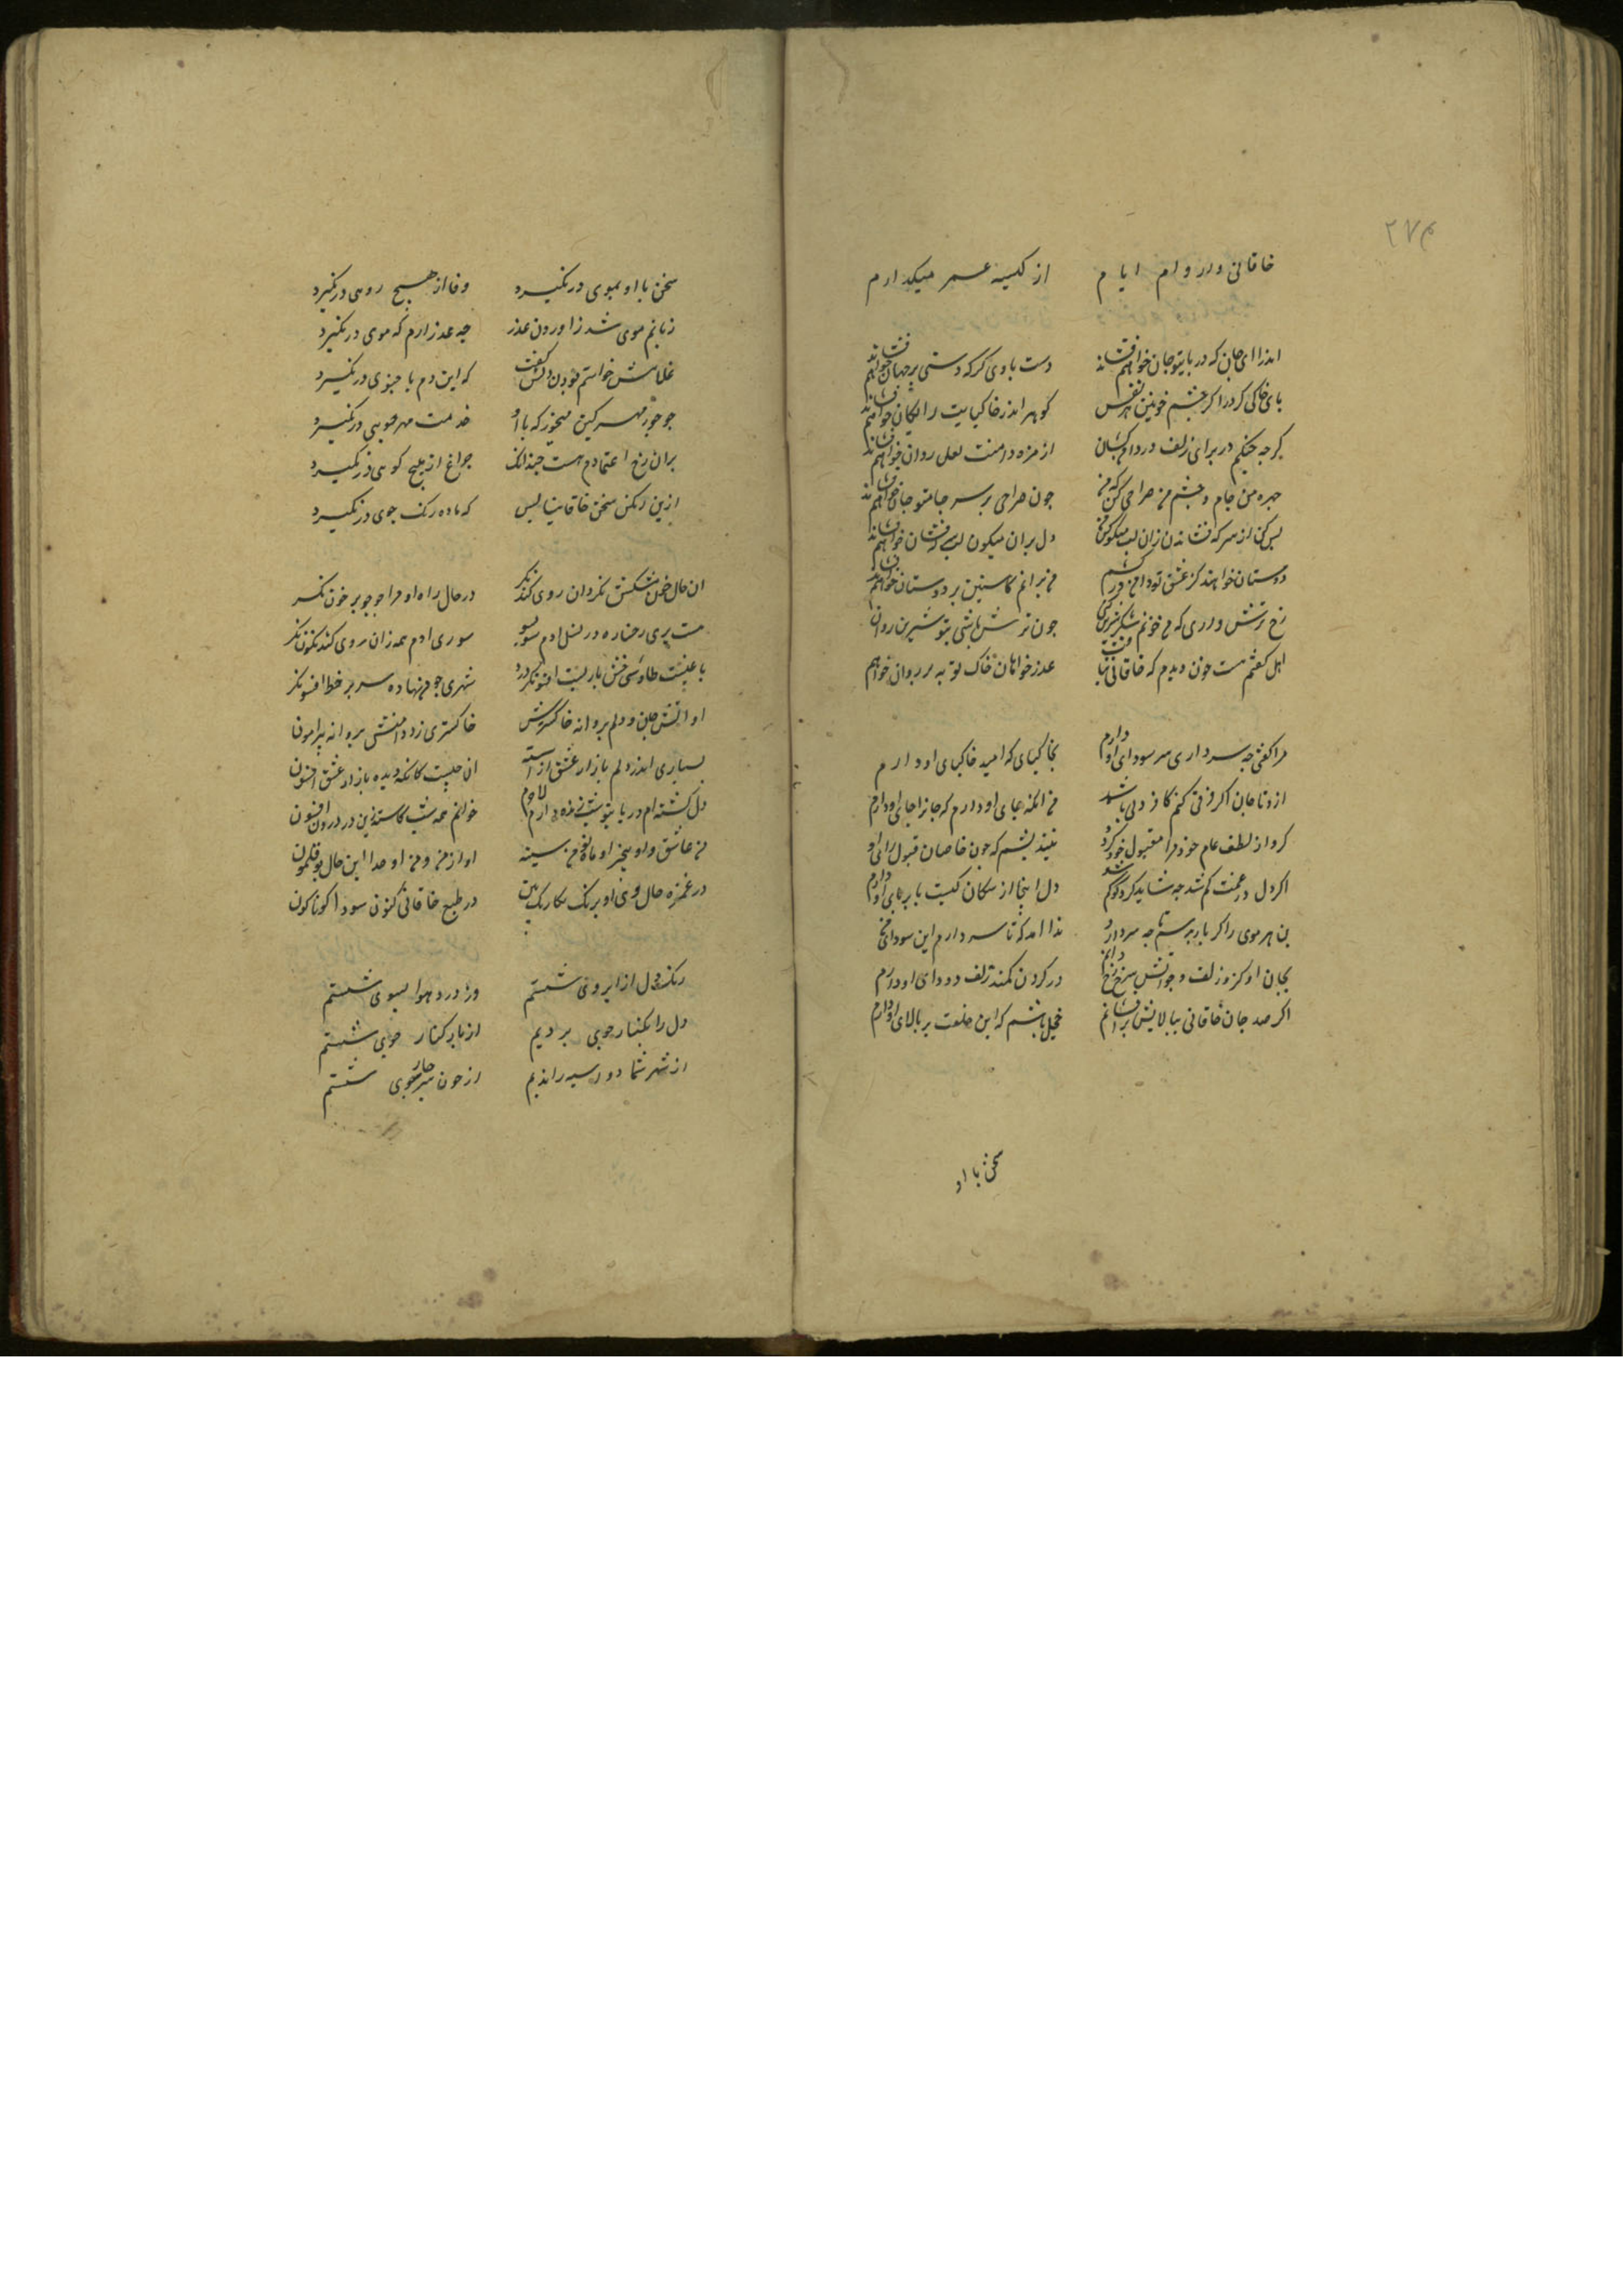 ۲۷۴
خاقانی دارد وام ایام از کیسه عمر میگذارم
اندرا ای جان که در پایتو جان خواهم فشاند دست یاری کر که دستی بر جهان خواهم فشاند
پای خاکی کن درا کز چشم خونین هر نفس کوهر اندر خاکپایت رایکان خواهم فشاند
کرچه جنکم در برای زلف در دامن کشان از مژه در دامنت لعل روان خواهم فشاند
چهره من جام و چشم من صراحی کن که من چون صراحی بر سر جامتو جان خواهم فشاند
بس کن از سرکه فشاندن زان لب میکون که من دل بران میکون لب سرکه فشان خواهم فشاند
دوستان خواهند کز عشق تو دامن درکشم من برانم کاستین بر دوستان خواهم فشاند
رخ ترش داری که من خوبم شکر شیرین کنی چون ترش باشی بتو شیرین روان
اهل کفتم هست چون دیدم که خاقانی نیافت عذر خواهان خاک توبه بر روان خواهم
مرا کفتی چه سر داری سر سودای او دارم بخاکپای کامید خاکپای او دارم
ازو تا جان اکر فرقی کنم کافر دلی باشد من انکه جای او دارم که جانرا جای او دارم
کر او از لطف عام خود مرا مقبول خود کرد نیندیشم که چون خاصان قبول رای او
اکر دل در غمت کم شد چه شاید کرد کو کم شد دل اینجا از سکان کیست تا پروای او دارم
بن هر موی را کر باز پرسی تا چه سر دارد ندا اید که تا سر دارم این سودای
بجان او کزو زلف و چو اتش سرخ رخ دارم در کردن کمند زلف دودای او دارم
اکر صد جان خاقانی ببالایش برافشانم خجل باشم که این خلعت بر بالای او دارم
سخن با او
سخن با او بموی درنکیرد وفا از هیچ روی درنکیرد
زبانم موی شد زاوردن عذر چه عذر ارم که موی درنکیرد
غلامش خواستم بودن دلش کفت که این دم با چنوی درنکیرد
جو جور مهر کین میخور که با او خدمت مهر جویی درنکیرد
بران رخ اعتمادم هست چندانک چراغ از هیچ کویی درنکیرد
ازین رنکین سخن خاقانیا بس که باده رنک جوی درنکیرد
ان خال خم شکنش نکر وان روی کندم‌کون نکر در خال راه او مرا جو جو بر خون نکر
هست پری رخساره در نسل ادم سوبسو سوی ادم همه زان روی کندم‌کون نکر
باغیست طاوسی رخش ماریست افسونکر درو شهری چو من نهاده سر بر خط افسون نکر
او اتش جان و دلم پروانه خاکسترش خاکستری زد دامنش پروانه پیرامون
بسیاری اندر دلم بازار عشق اراسته ان چیست کانکه دیده بازار عشق اکنون
دل کشته‌ام در پایتو شبزنده دارم لاجرم خوانم همه شب کاستین در دروان افسون
من عاشق و او بیخبر او ماه و من بسینه او از من و من او جدا این حال بوقلمون
در غمزه حال و وی او نیرنک رنکارنک بین در طبع خاقانی کنون سودا کوناکون
رنک دل از ابروی شستم ورد درد هوا بسوی شستم
دل را بکنار جوی بردیم از یار کنار جوی شستم
از شهر شما دو اسبه راندیم از خون سر چارسوی شستم